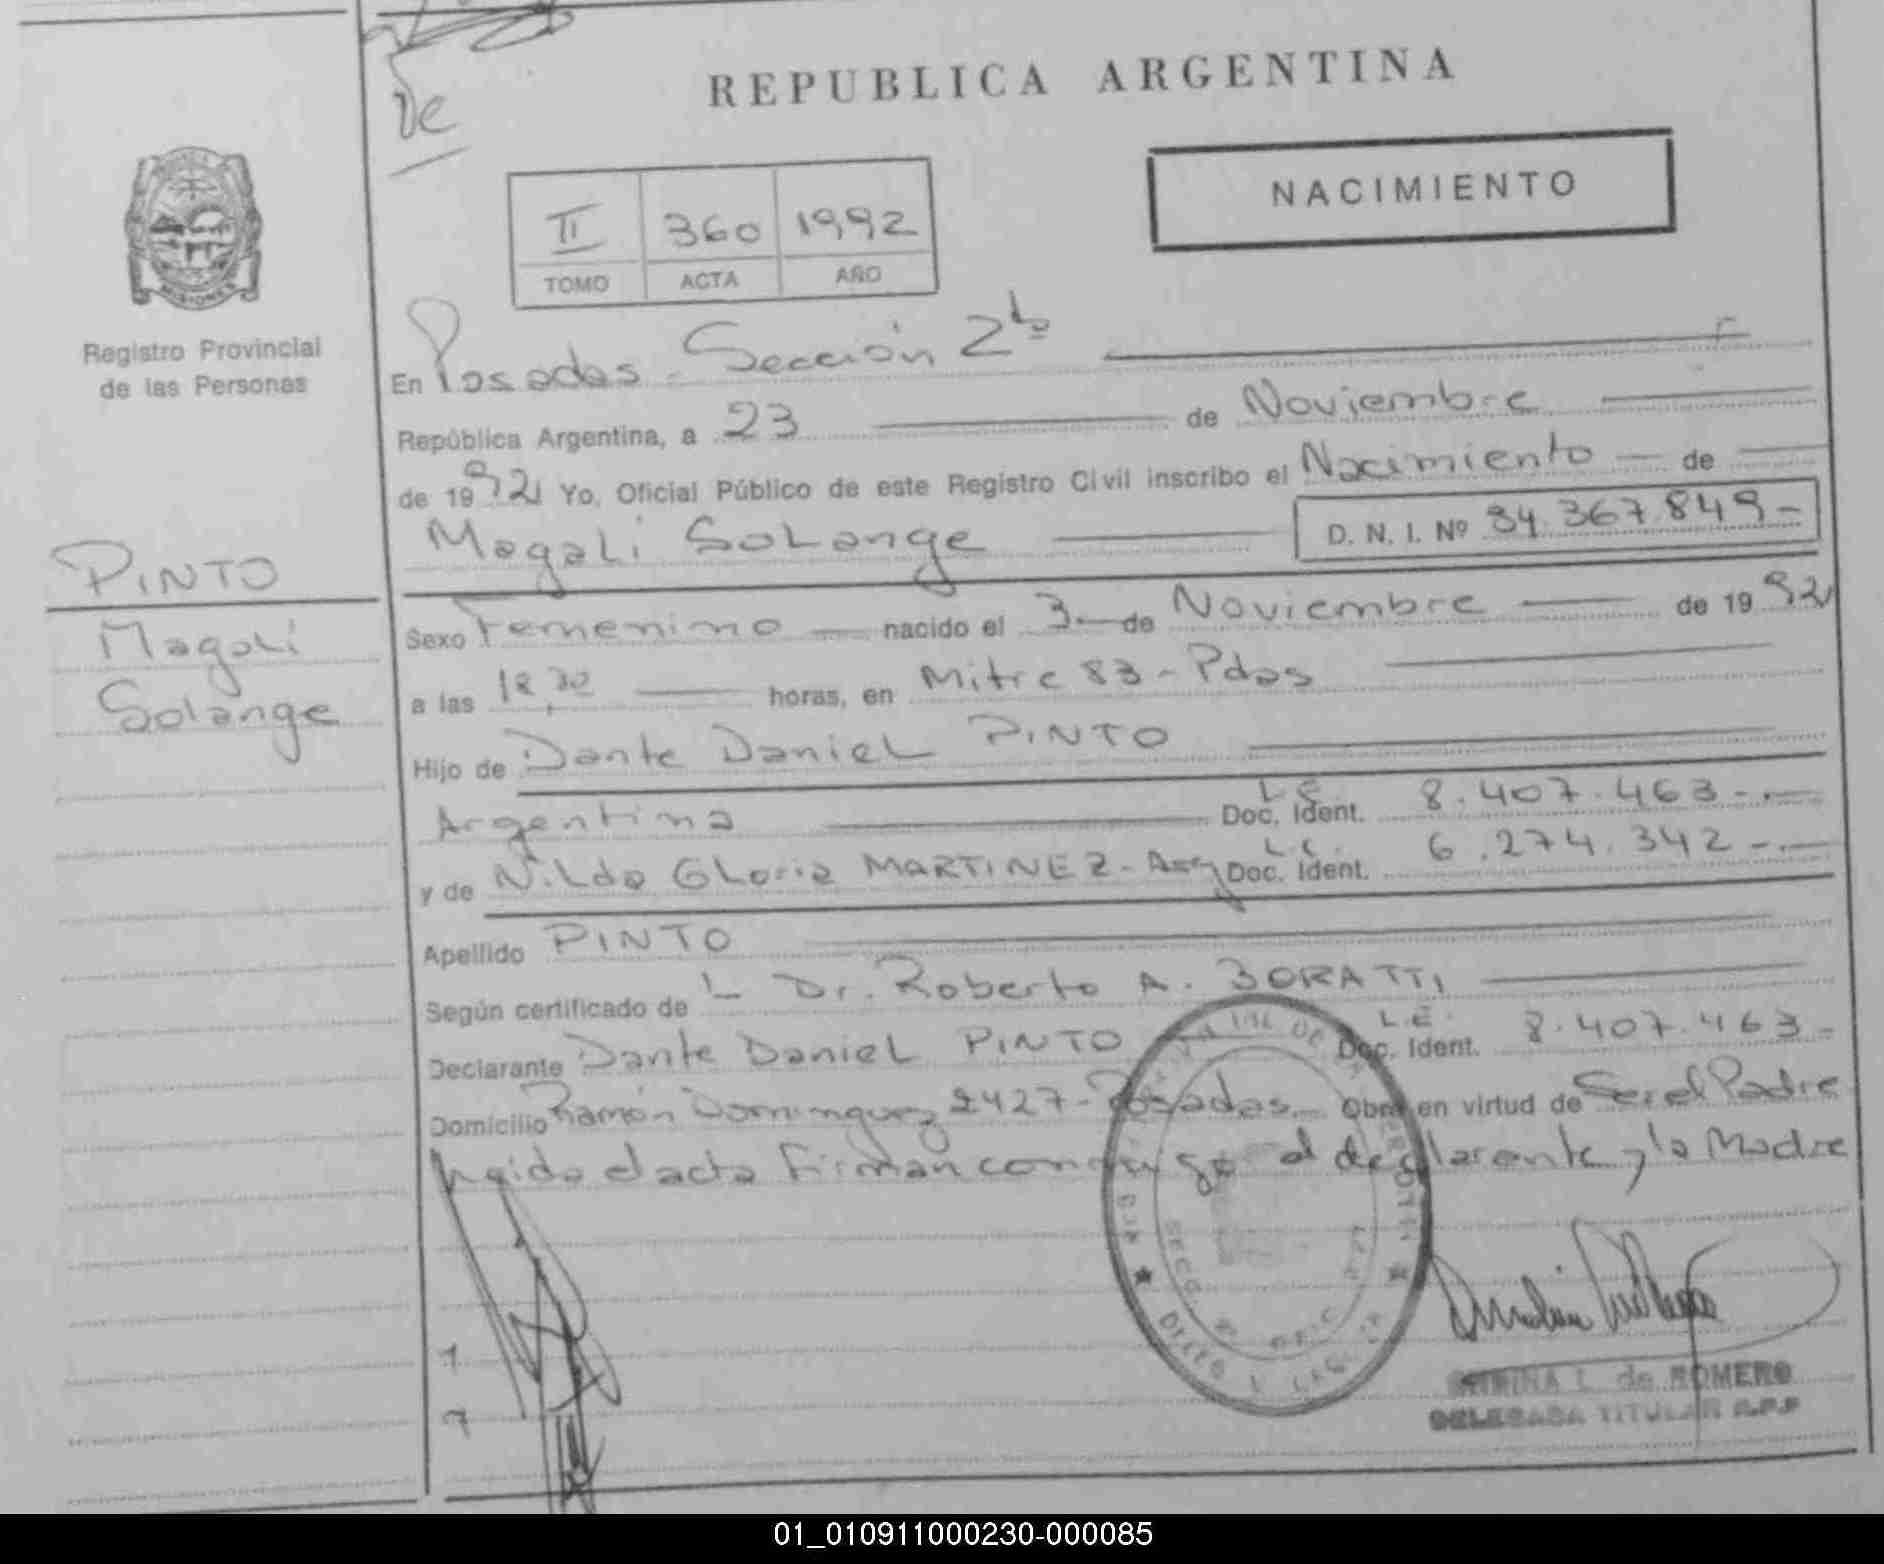 REPUBLICA ARGENTINA
De
NACIMIENTO
II 360 1992
TOMO ACTA AÑO
MISIONES
Registro Provincial
de las Personas
PINTO
Magali
Solange
En Posadas - Sección 2da
República Argentina, a 23 de Noviembre
de 1992 Yo, Oficial Público de este Registro Civil inscribo el Nacimiento de
Magali Solange D. N. I. Nº 34.367.849-
Sexo Femenino nacido el 3 de Noviembre de 1992
a las 18,30 horas, en Mitre 83 - Pdas
Hijo de Dante Daniel PINTO
Argentina L.E. Doc. Ident. 8.407.463-.-
y de Nilda Gloria MARTINEZ - Arg L.C. Doc. Ident. 6.274.342-.-
Apellido PINTO
Según certificado de L Dr. Roberto A. BORATTI
Declarante Dante Daniel PINTO L.E. Doc. Ident. 8.407.463-
Domicilio Ramón Dominguez 2427 - Posadas Obra en virtud de Ser el Padre
Leida el acta Firman conmigo el declarante y la Madre
L. de ROMERO
DELEGADA TITULAR R.P.P
01_010911000230-000085